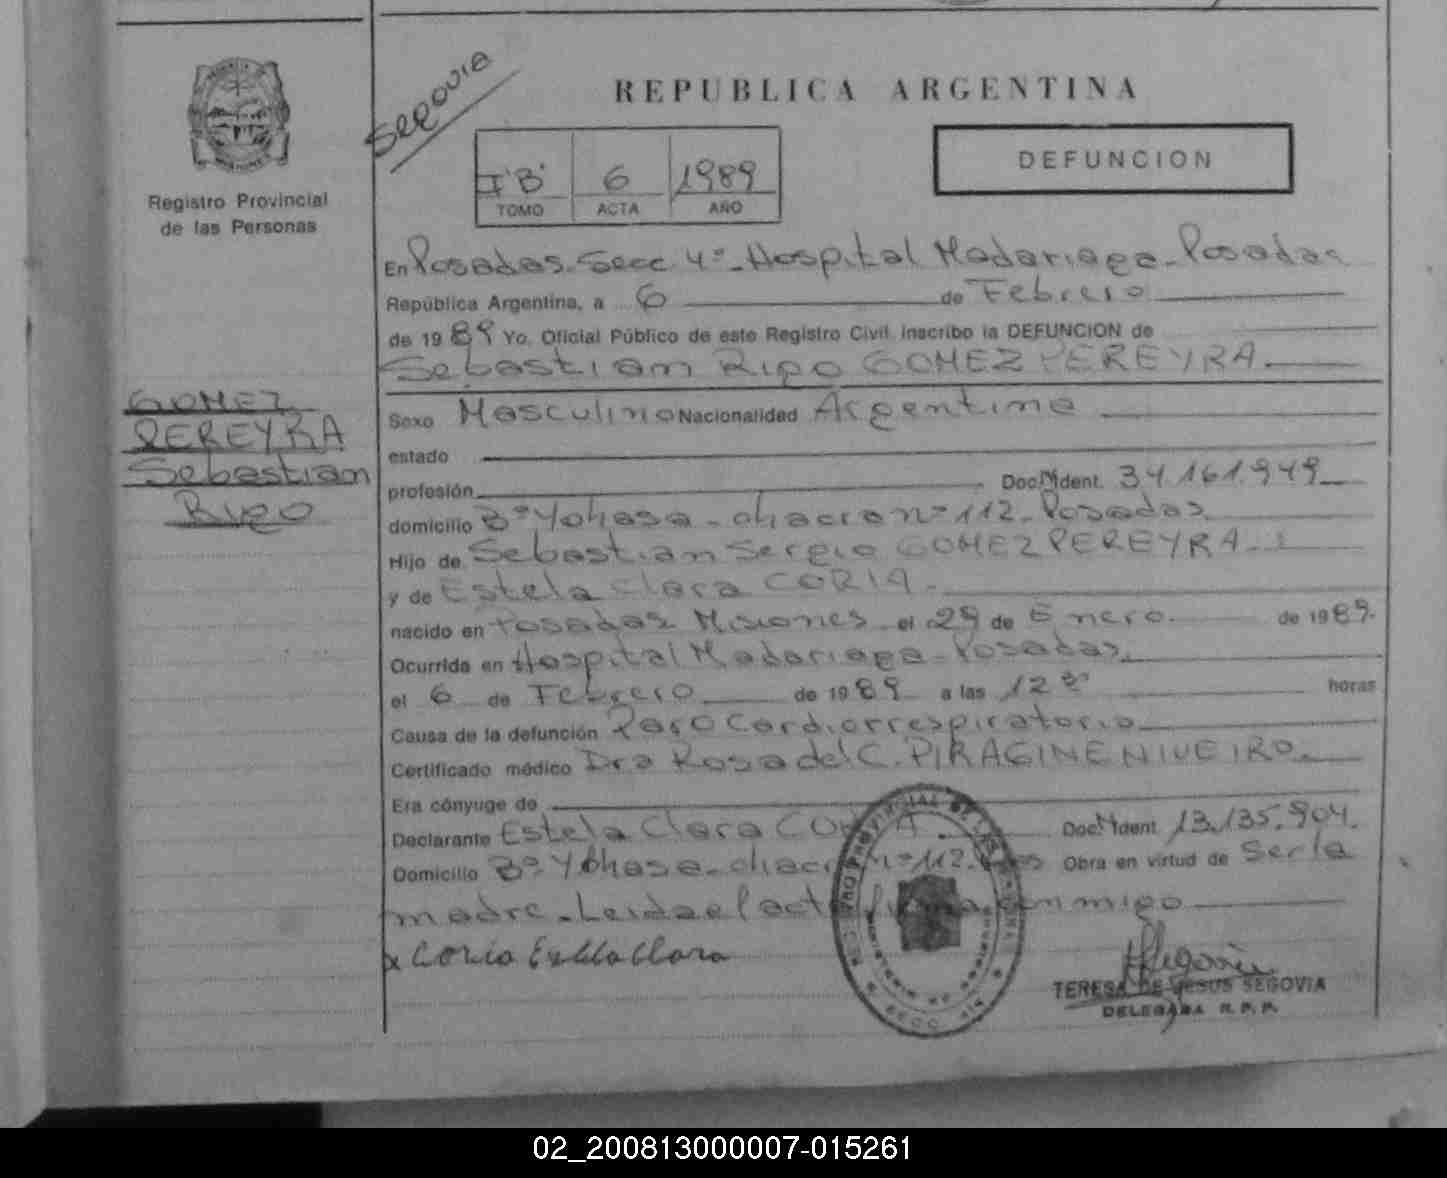 Segovia
REPUBLICA ARGENTINA
DEFUNCION
I "B" 6 1989
TOMO ACTA AÑO
Registro Provincial
de las Personas
En Posadas. Secc. 4º - Hospital Madariaga - Posadas
República Argentina, a 6 de Febrero
de 1989 Yo, Oficial Público de este Registro Civil, inscribo la DEFUNCION de
Sebastian Rigo GOMEZ PEREYRA.
GOMEZ
PEREYRA
Sebastian
Rigo
Sexo Masculino Nacionalidad Argentina
estado
profesión Doc. Ident. 34.161.949
domicilio Bº Yohasa - chacra nº 112 - Posadas
Hijo de Sebastian Sergio GOMEZ PEREYRA.
y de Estela Clara CORIA.
nacido en Posadas Misiones el 29 de Enero de 1989.
Ocurrida en Hospital Madariaga - Posadas
el 6 de Febrero de 1989 a las 12 horas
Causa de la defunción Paro Cardiorrespiratorio
Certificado médico Dra Rosa del C. PIRAGINE NIVEIRO
Era cónyuge de
Declarante Estela Clara CORIA. Doc. Ident. 13.135.904.
Domicilio Bº Yohasa - chacra nº 112. Obra en virtud de Ser la
madre - Leida el acta firma conmigo
x Coria Estela Clara
TERESA DE JESUS SEGOVIA
DELEGADA R. P. P.
02_200813000007-015261